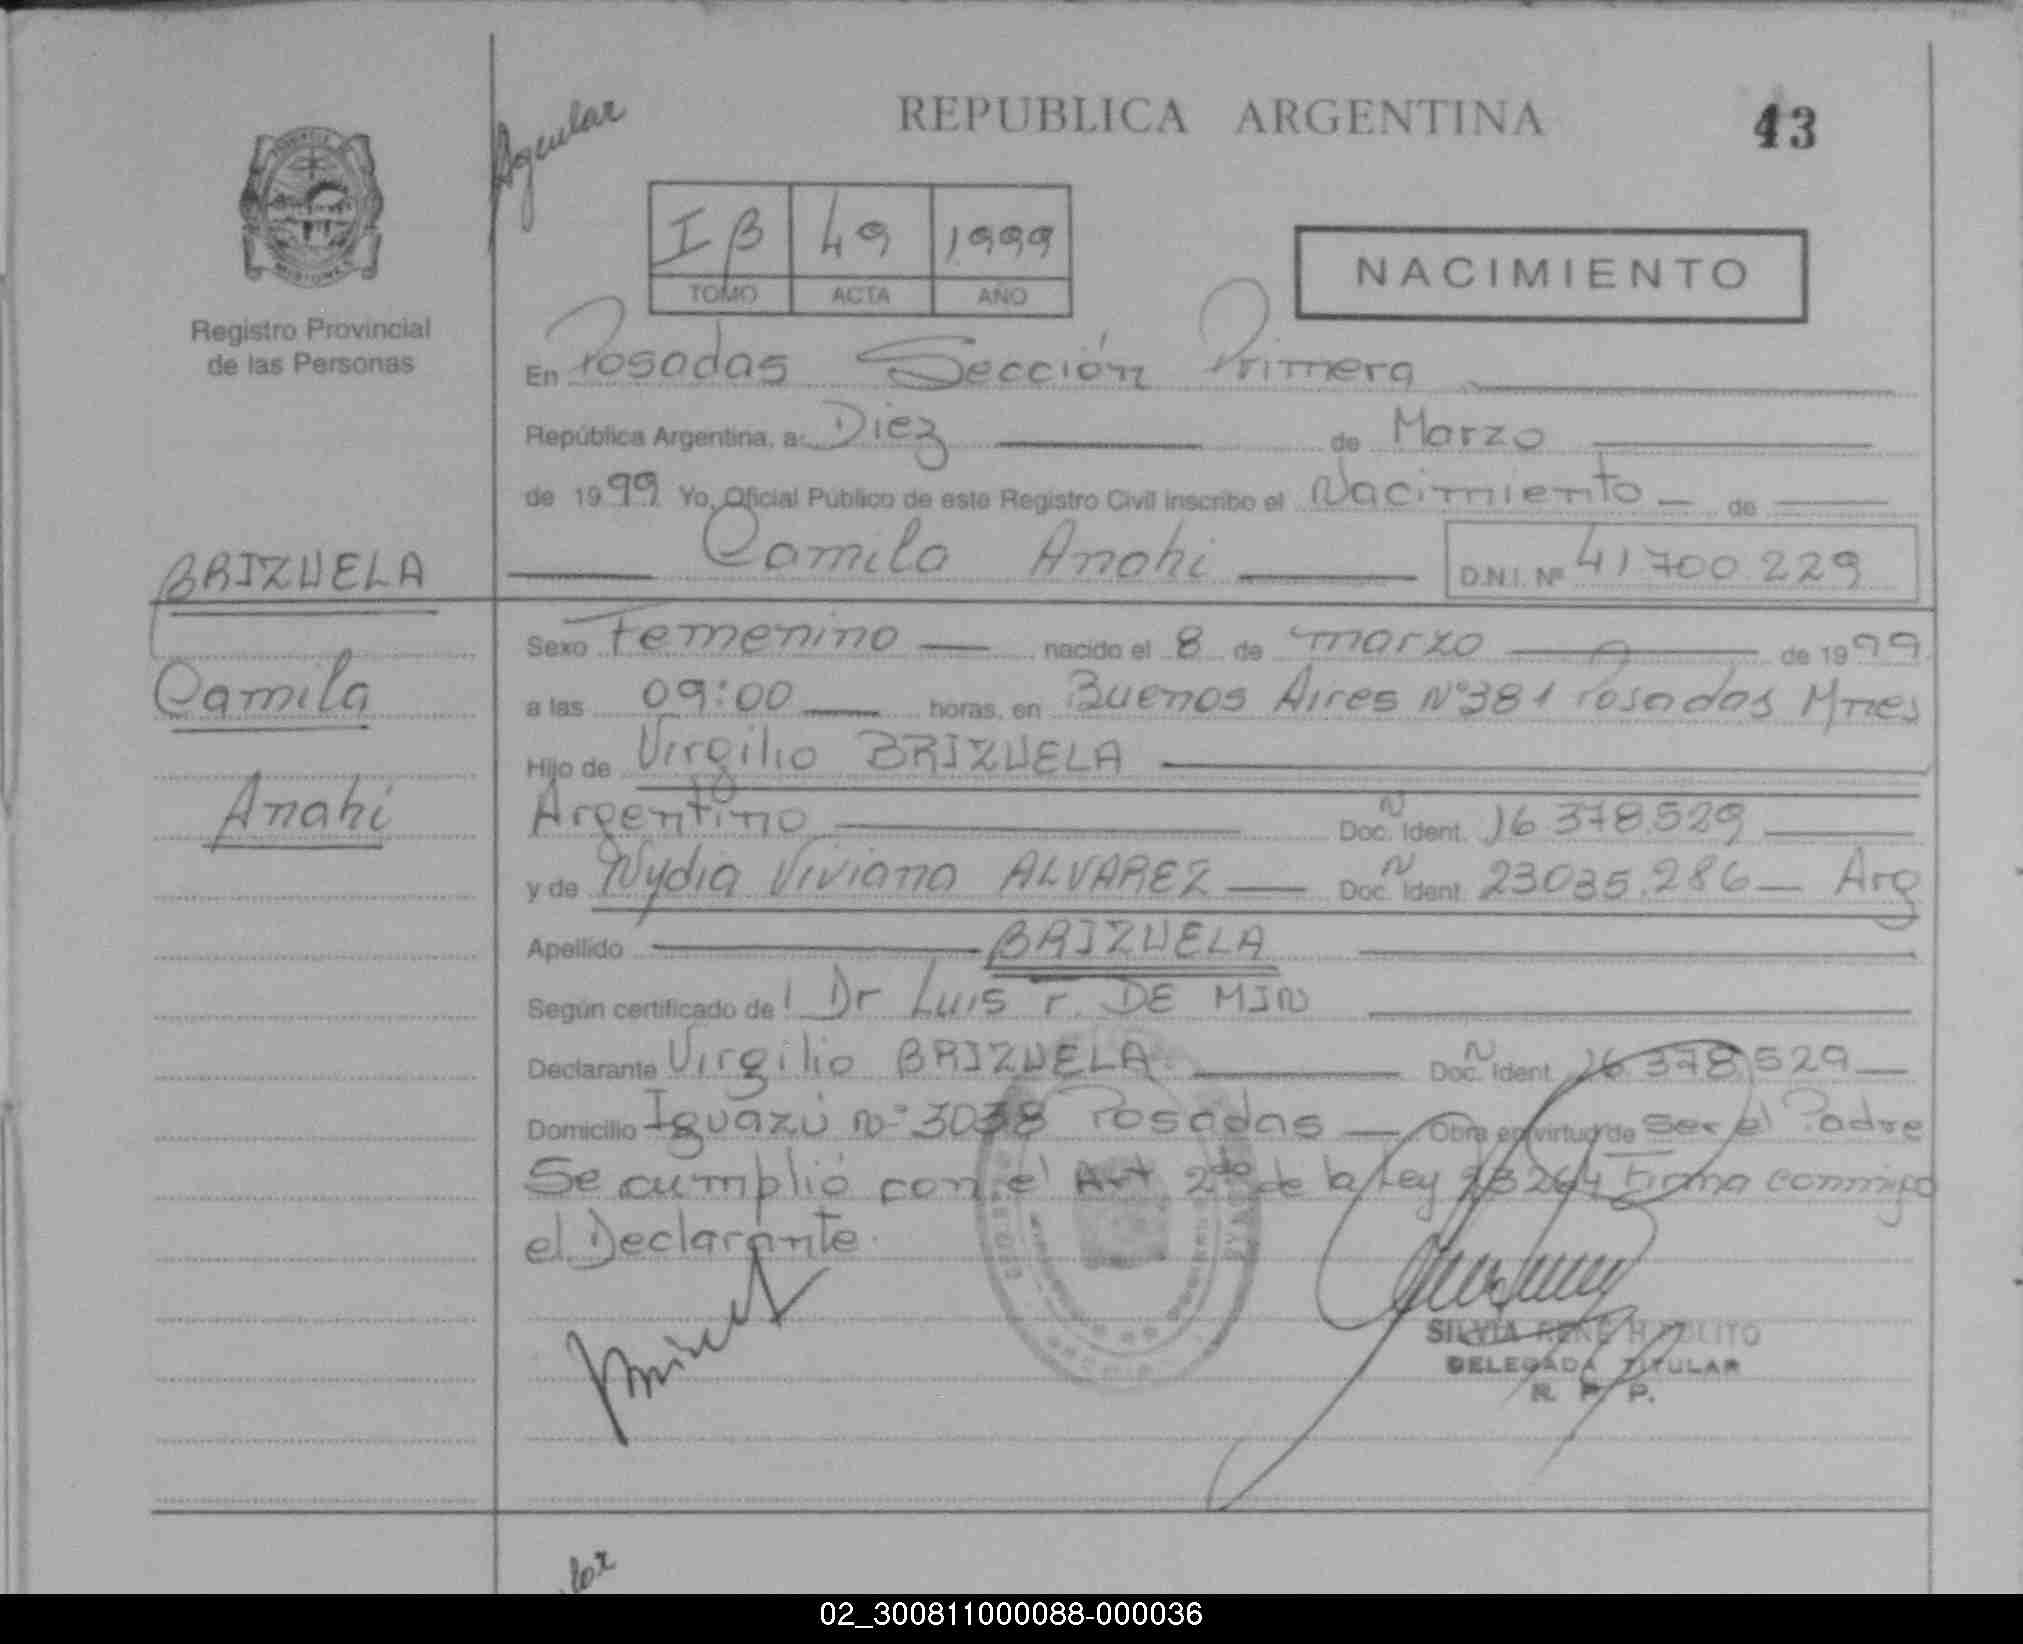 Aguilar
REPUBLICA ARGENTINA
43
I B 49 1999
TOMO ACTA AÑO
NACIMIENTO
Registro Provincial
de las Personas
En Posadas Sección Primera
República Argentina, a: Diez de Marzo
de 1999 Yo, Oficial Público de este Registro Civil inscribo el Nacimiento de
BRIZUELA
Camila Anahi D.N.I. Nº 41700229
Camila
Anahi
Sexo Femenino nacido el 8 de marzo de 1999
a las 09:00 horas, en Buenos Aires Nº381 Posadas Mnes
Hijo de Virgilio BRIZUELA
Argentino Doc. Ident. 16.378.529
y de Nydia Viviana ALVAREZ Doc. Ident. 23035.286 Arg
Apellido BRIZUELA
Según certificado de Dr Luis F. DE MIN
Declarante Virgilio BRIZUELA Doc. Ident. 16.378.529
Domicilio Iguazú Nº 3038 Posadas Obra en virtud de Ser el Padre
Se cumplió con el Art 2do de la Ley 23264 Firma conmigo
el Declarante.
SILVIA RENE HIPOLITO
DELEGADA TITULAR
R. P. P.
02_300811000088-000036